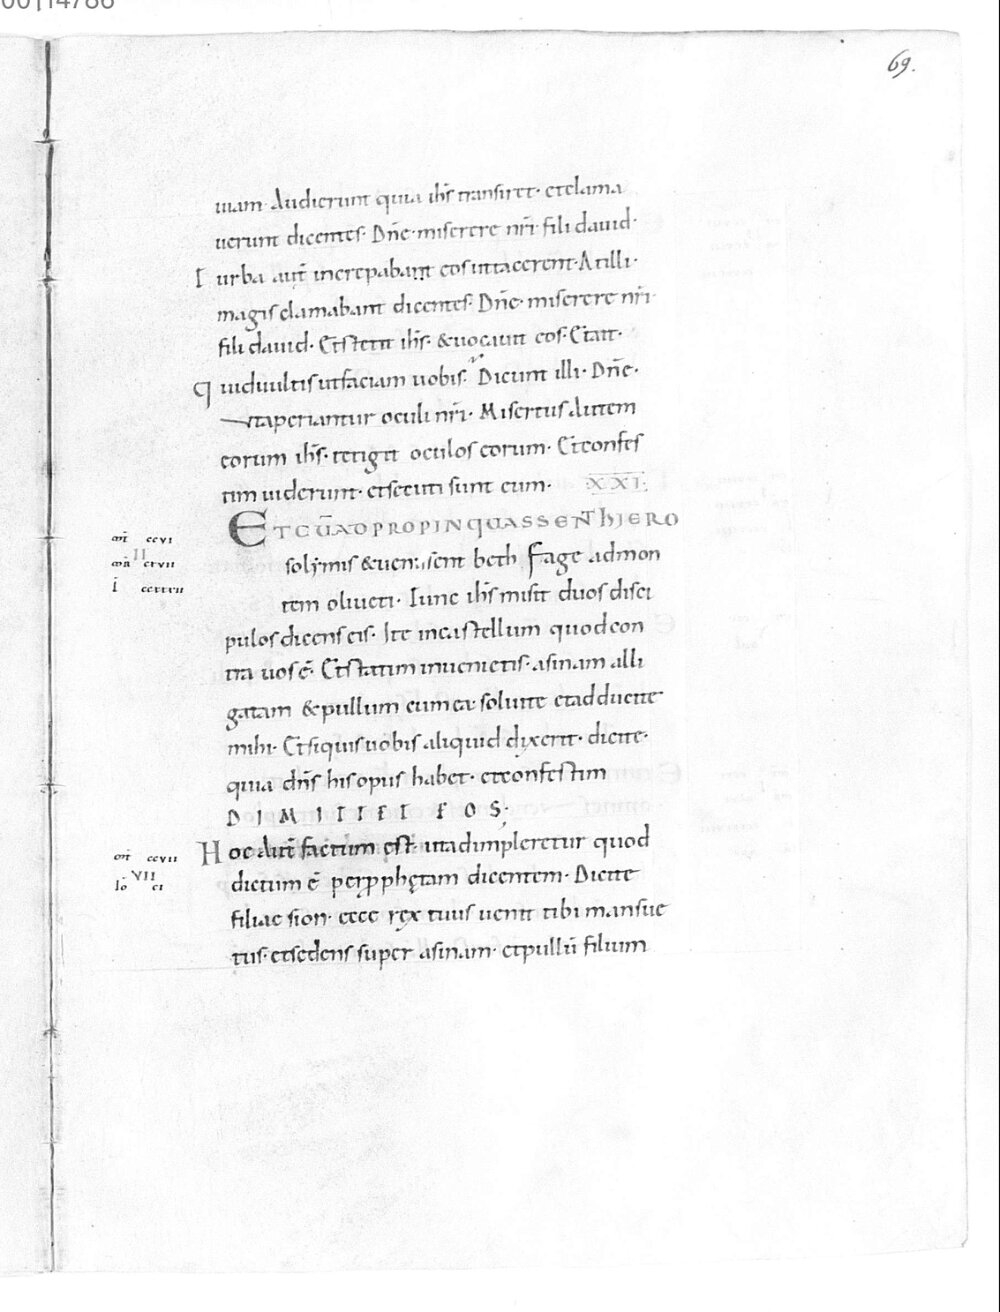 69.
uiam· Audierunt quia ih̅s transiret· et clama
uerunt dicentes· Dn̅e· miserere nr̅i· fili dauid·
Turba aut̅ increpabant eos ut tacerent· At illi·
magis clamabant dicentes· Dn̅e· miserere nr̅i·
fili dauid· Et stetit ih̅s· & uocauit eos· Et ait·
Quid uultis ut faciam uobis· Dicunt illi· Dn̅e·
ut aperiantur oculi nr̅i· Misertus autem
eorum ih̅s· tetigit oculos eorum· Et confes
tim uiderunt· et secuti sunt eum· XXI·
ET CU̅ ADPROPINQUASSENT HIERO
mt̅ ccvi
solymis & uenissent beth fage ad mon
II
mr̅ cxvii
tem oliueti· Tunc ih̅s misit duos disci
l̅ ccxxxii
pulos dicens eis· Ite in castellum quod con
tra uos e̅· Et statim inuenietis· asinam alli
gatam & pullum cum ea· soluite et adducite
mihi· Et si quis uobis aliquid dixerit· dicite·
quia dn̅s his opus habet· et confestim
DIMITTET EOS·
Hoc aut̅ factum est· ut adimpleretur quod
mt̅ ccvii
dictum e̅ per prophetam dicentem· Dicite
VII
Io ci
filiae sion· ecce rex tuus uenit tibi mansue
tus· et sedens super asinam· et pullu̅ filium